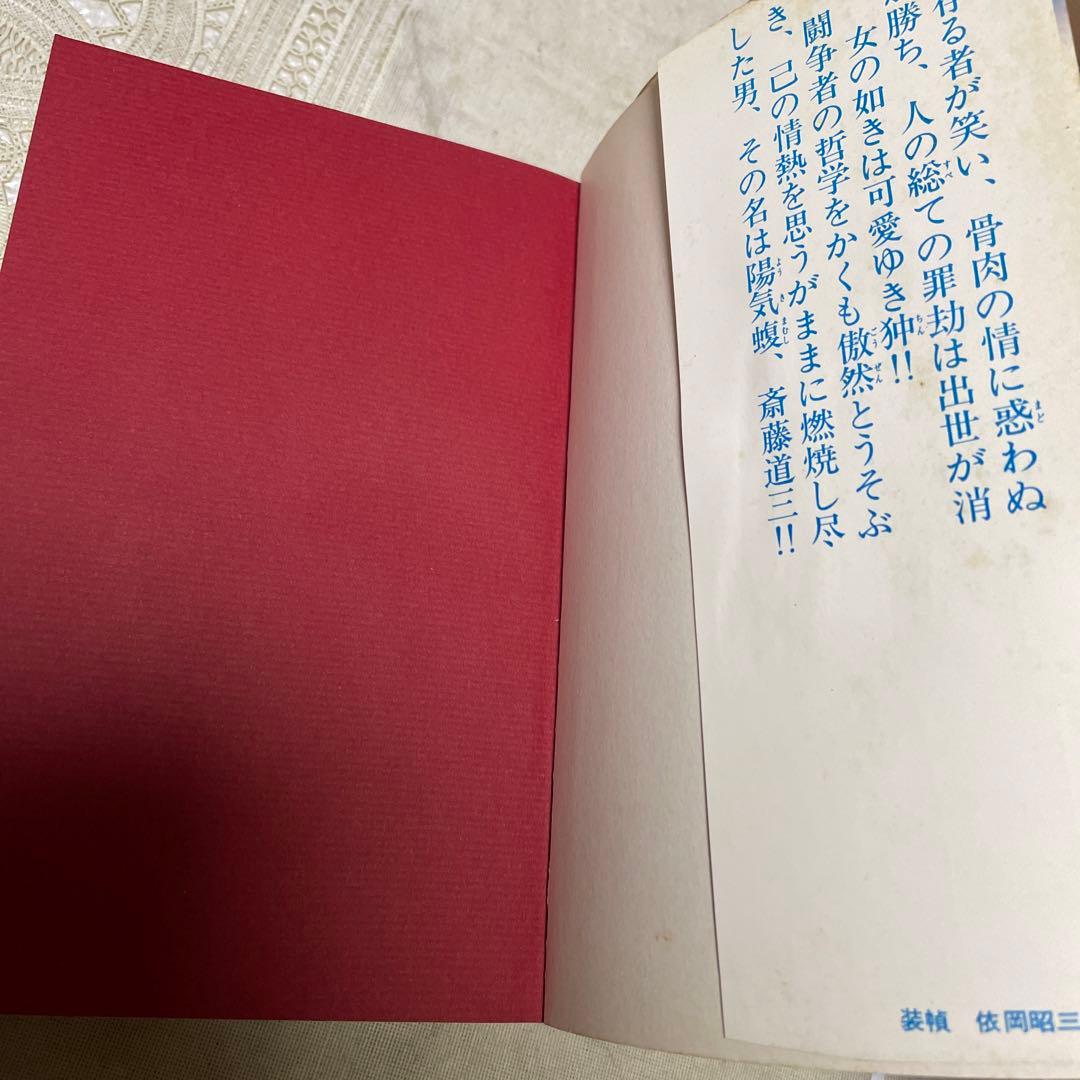 る者が笑い、骨肉の情に惑わぬ
勝ち、人の総ての罪劫は出世が消
女の如きは可愛ゆき狆!!
闘争者の哲学をかくも傲然とうそぶ
き、己の情熱を思うがままに燃焼し尽
した男、その名は陽気蝮、斎藤道三!!
装幀 依岡昭三